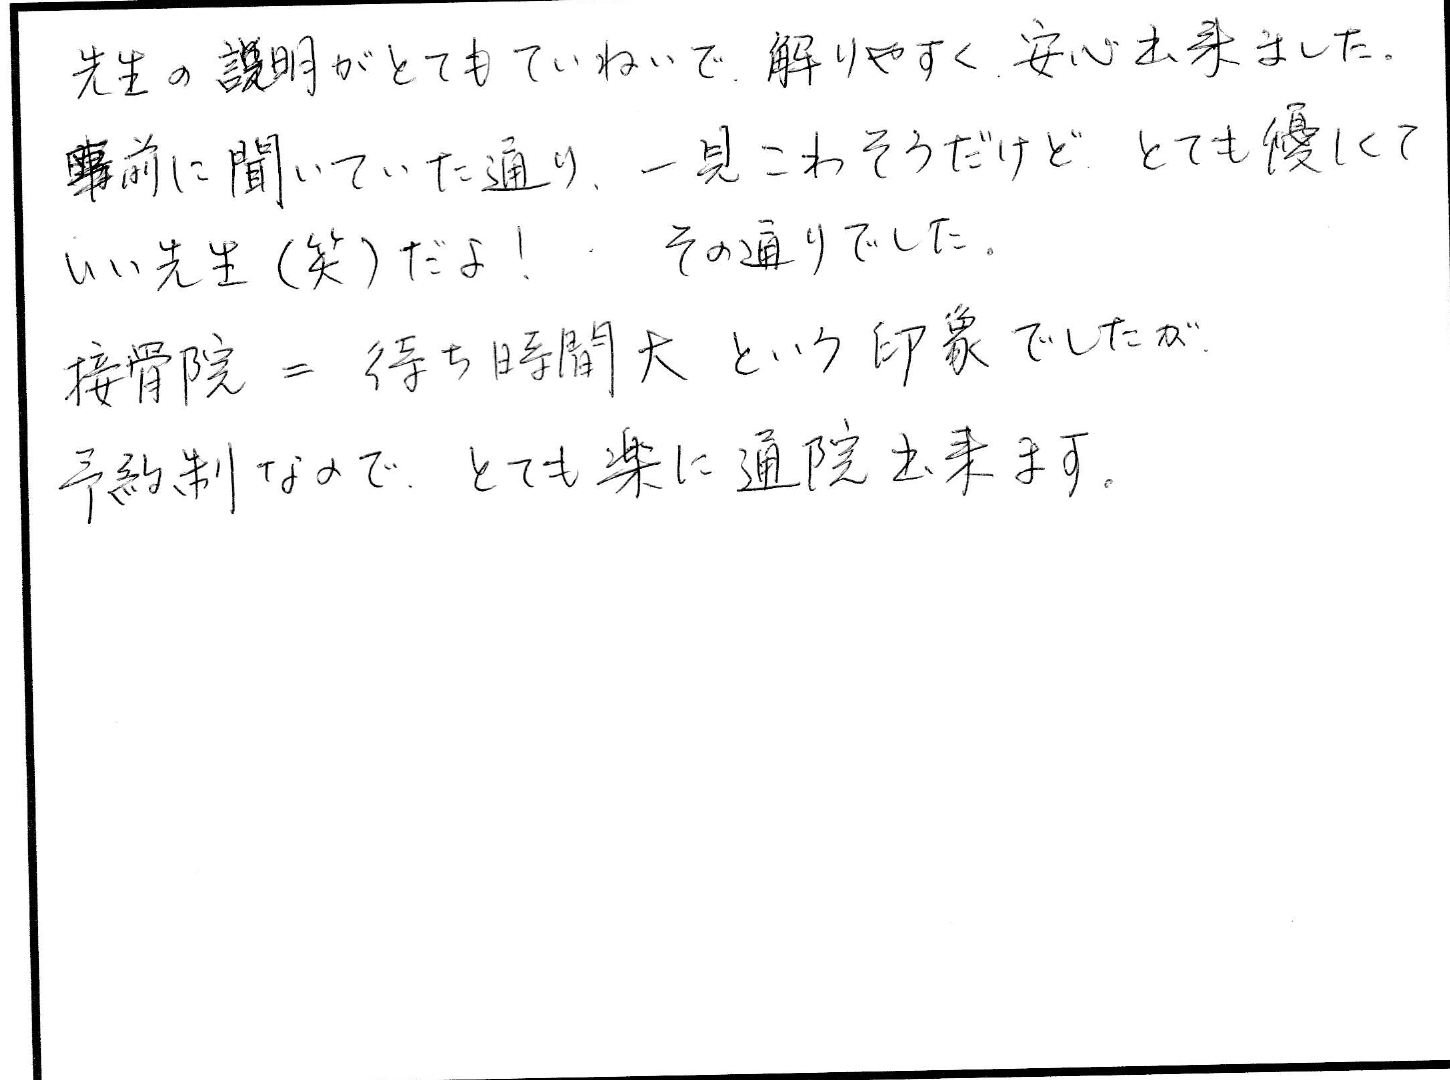 先生の説明がとてもていねいで、解りやすく、安心出来ました。
事前に聞いていた通り、一見こわそうだけど、とても優しくて
いい先生(笑)だよ! その通りでした。
接骨院 = 待ち時間大 という印象でしたが、
予約制なので、とても楽に通院出来ます。